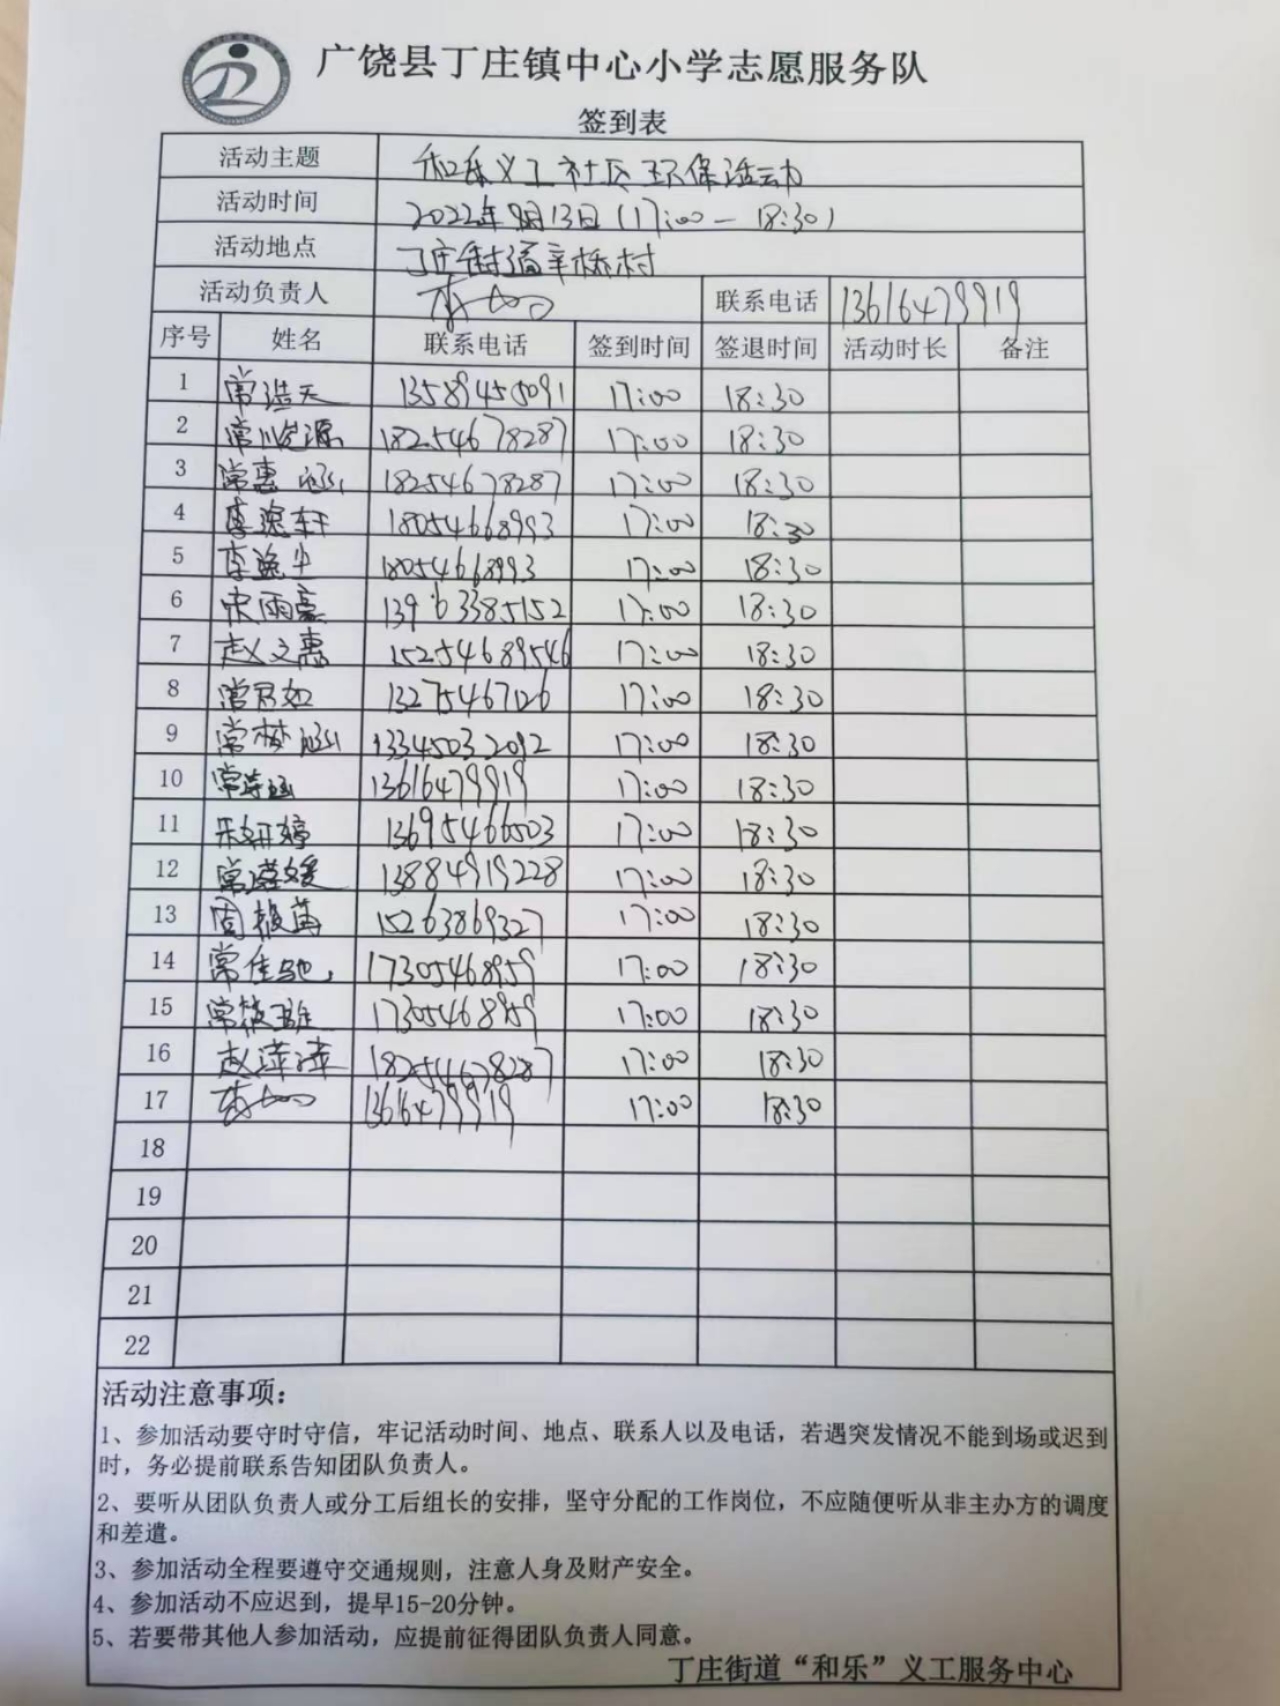 广饶县丁庄镇中心小学志愿服务队
签到表
活动主题 和乐义工社区环保活动
活动时间 2022年9月13日(17:00-18:30)
活动地点 丁庄街道辛桥村
活动负责人 联系电话 13616479919
序号 姓名 联系电话 签到时间 签退时间 活动时长 备注
1 常浩天 13589455091 17:00 18:30
2 常 源 18254678287 17:00 18:30
3 常惠涵 18254678287 17:00 18:30
4 李逸轩 18054668993 17:00 18:30
5 李逸 18054668993 17:00 18:30
6 宋雨豪 13963385152 17:00 18:30
7 赵文惠 15254689546 17:00 18:30
8 常君如 13275467126 17:00 18:30
9 常梦涵 13345032092 17:00 18:30
10 常 涵 13616479919 17:00 18:30
11 宋妍婷 13695466503 17:00 18:30
12 常 媛 13884919228 17:00 18:30
13 周 苒 15263869327 17:00 18:30
14 常佳驰 17305468959 17:00 18:30
15 常筱 17305468959 17:00 18:30
16 赵萍萍 18254678287 17:00 18:30
17 13616479919 17:00 18:30
18
19
20
21
22
活动注意事项：
1、参加活动要守时守信，牢记活动时间、地点、联系人以及电话，若遇突发情况不能到场或迟到
时，务必提前联系告知团队负责人。
2、要听从团队负责人或分工后组长的安排，坚守分配的工作岗位，不应随便听从非主办方的调度
和差遣。
3、参加活动全程要遵守交通规则，注意人身及财产安全。
4、参加活动不应迟到，提早15-20分钟。
5、若要带其他人参加活动，应提前征得团队负责人同意。
丁庄街道“和乐”义工服务中心